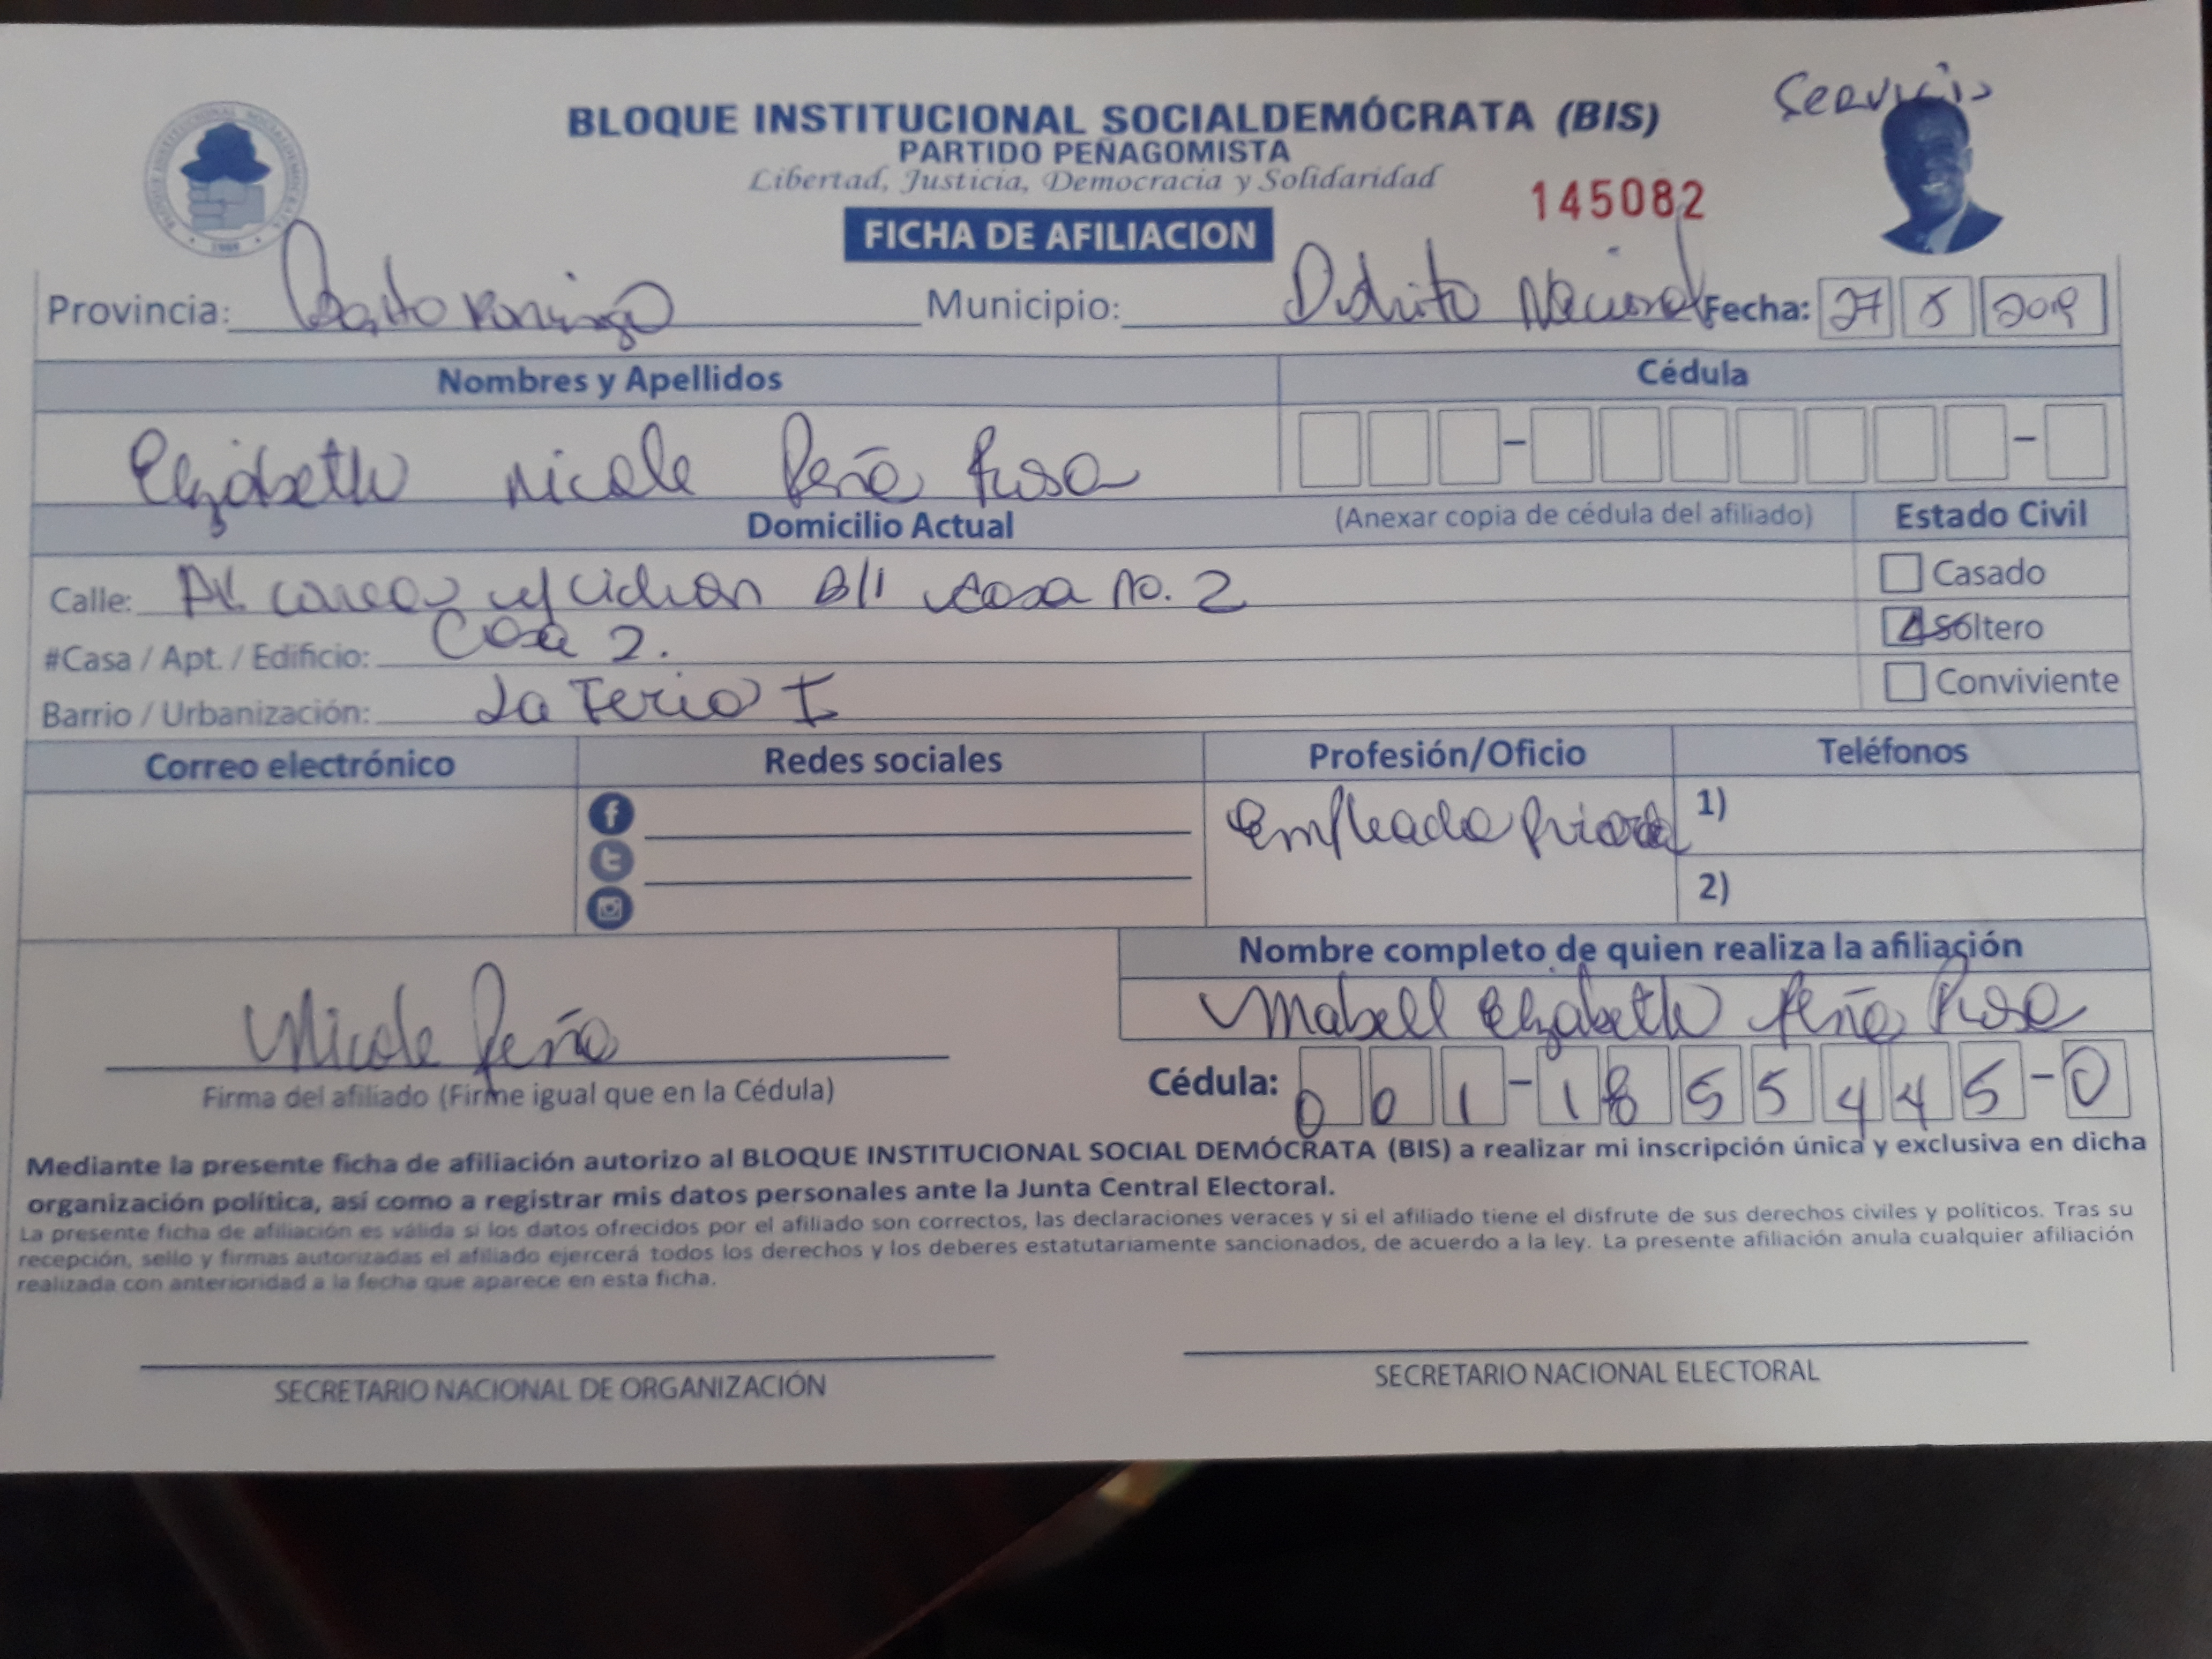 Servicio
BLOQUE INSTITUCIONAL SOCIALDEMÓCRATA (BIS)
PARTIDO PEÑAGOMISTA
Libertad, Justicia, Democracia y Solidaridad
145082
FICHA DE AFILIACION
Provincia: Santo Domingo Municipio: Distrito Nacional Fecha: 27 2019
Nombres y Apellidos Cédula
Elizabeth Nicole Peña Rosa
Domicilio Actual (Anexar copia de cédula del afiliado) Estado Civil
Calle: casa no. 2 Casado
#Casa / Apt. / Edificio: Casa 2. Soltero
Barrio / Urbanización: La Feria I Conviviente
Correo electrónico Redes sociales Profesión/Oficio Teléfonos
Empleada privada 1)
2)
Nombre completo de quien realiza la afiliación
Nicole Peña Mabell Elizabeth Peña Rosa
Firma del afiliado (Firme igual que en la Cédula) Cédula: 001-1855445-0
Mediante la presente ficha de afiliación autorizo al BLOQUE INSTITUCIONAL SOCIAL DEMÓCRATA (BIS) a realizar mi inscripción única y exclusiva en dicha
organización política, así como a registrar mis datos personales ante la Junta Central Electoral.
La presente ficha de afiliación es válida si los datos ofrecidos por el afiliado son correctos, las declaraciones veraces y si el afiliado tiene el disfrute de sus derechos civiles y políticos. Tras su
recepción, sello y firmas autorizadas el afiliado ejercerá todos los derechos y los deberes estatutariamente sancionados, de acuerdo a la ley. La presente afiliación anula cualquier afiliación
realizada con anterioridad a la fecha que aparece en esta ficha.
SECRETARIO NACIONAL DE ORGANIZACIÓN SECRETARIO NACIONAL ELECTORAL